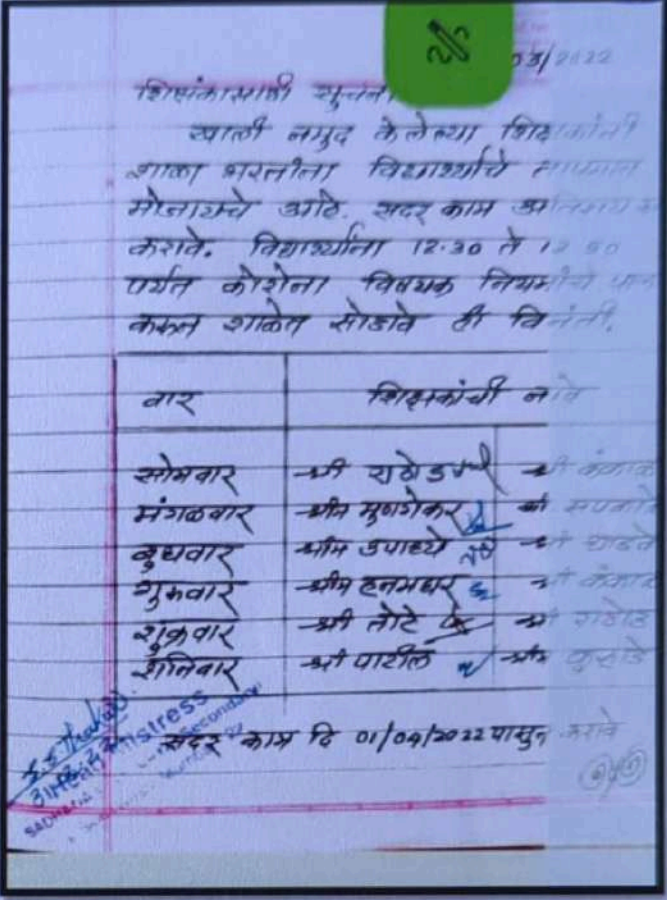 03/2022
शिक्षकांसाठी सूचना
खाली नमुद केलेल्या शिक्षकांनी
शाळा भरतांना विद्यार्थ्यांचे तापमान
मोजायचे आहे. सदर काम
करावे. विद्यार्थ्यांना 12.30 ते 12.50
पर्यंत कोरोना विषयक नियमांचे
करून शाळेत सोडावे ही विनंती.
वार शिक्षकांची नावे
सोमवार श्री राठोड श्री कंकाळ
मंगळवार श्रीम मुणगेकर श्री सपकाळे
बुधवार श्रीम उपाध्ये श्री
गुरुवार श्रीम हनमघर श्री कंकाळ
शुक्रवार श्री तोटे श्री राठोड
शनिवार श्री पाटील श्रीम
सदर काम दि 01/04/2022 पासुन करावे
Headmistress
Secondary